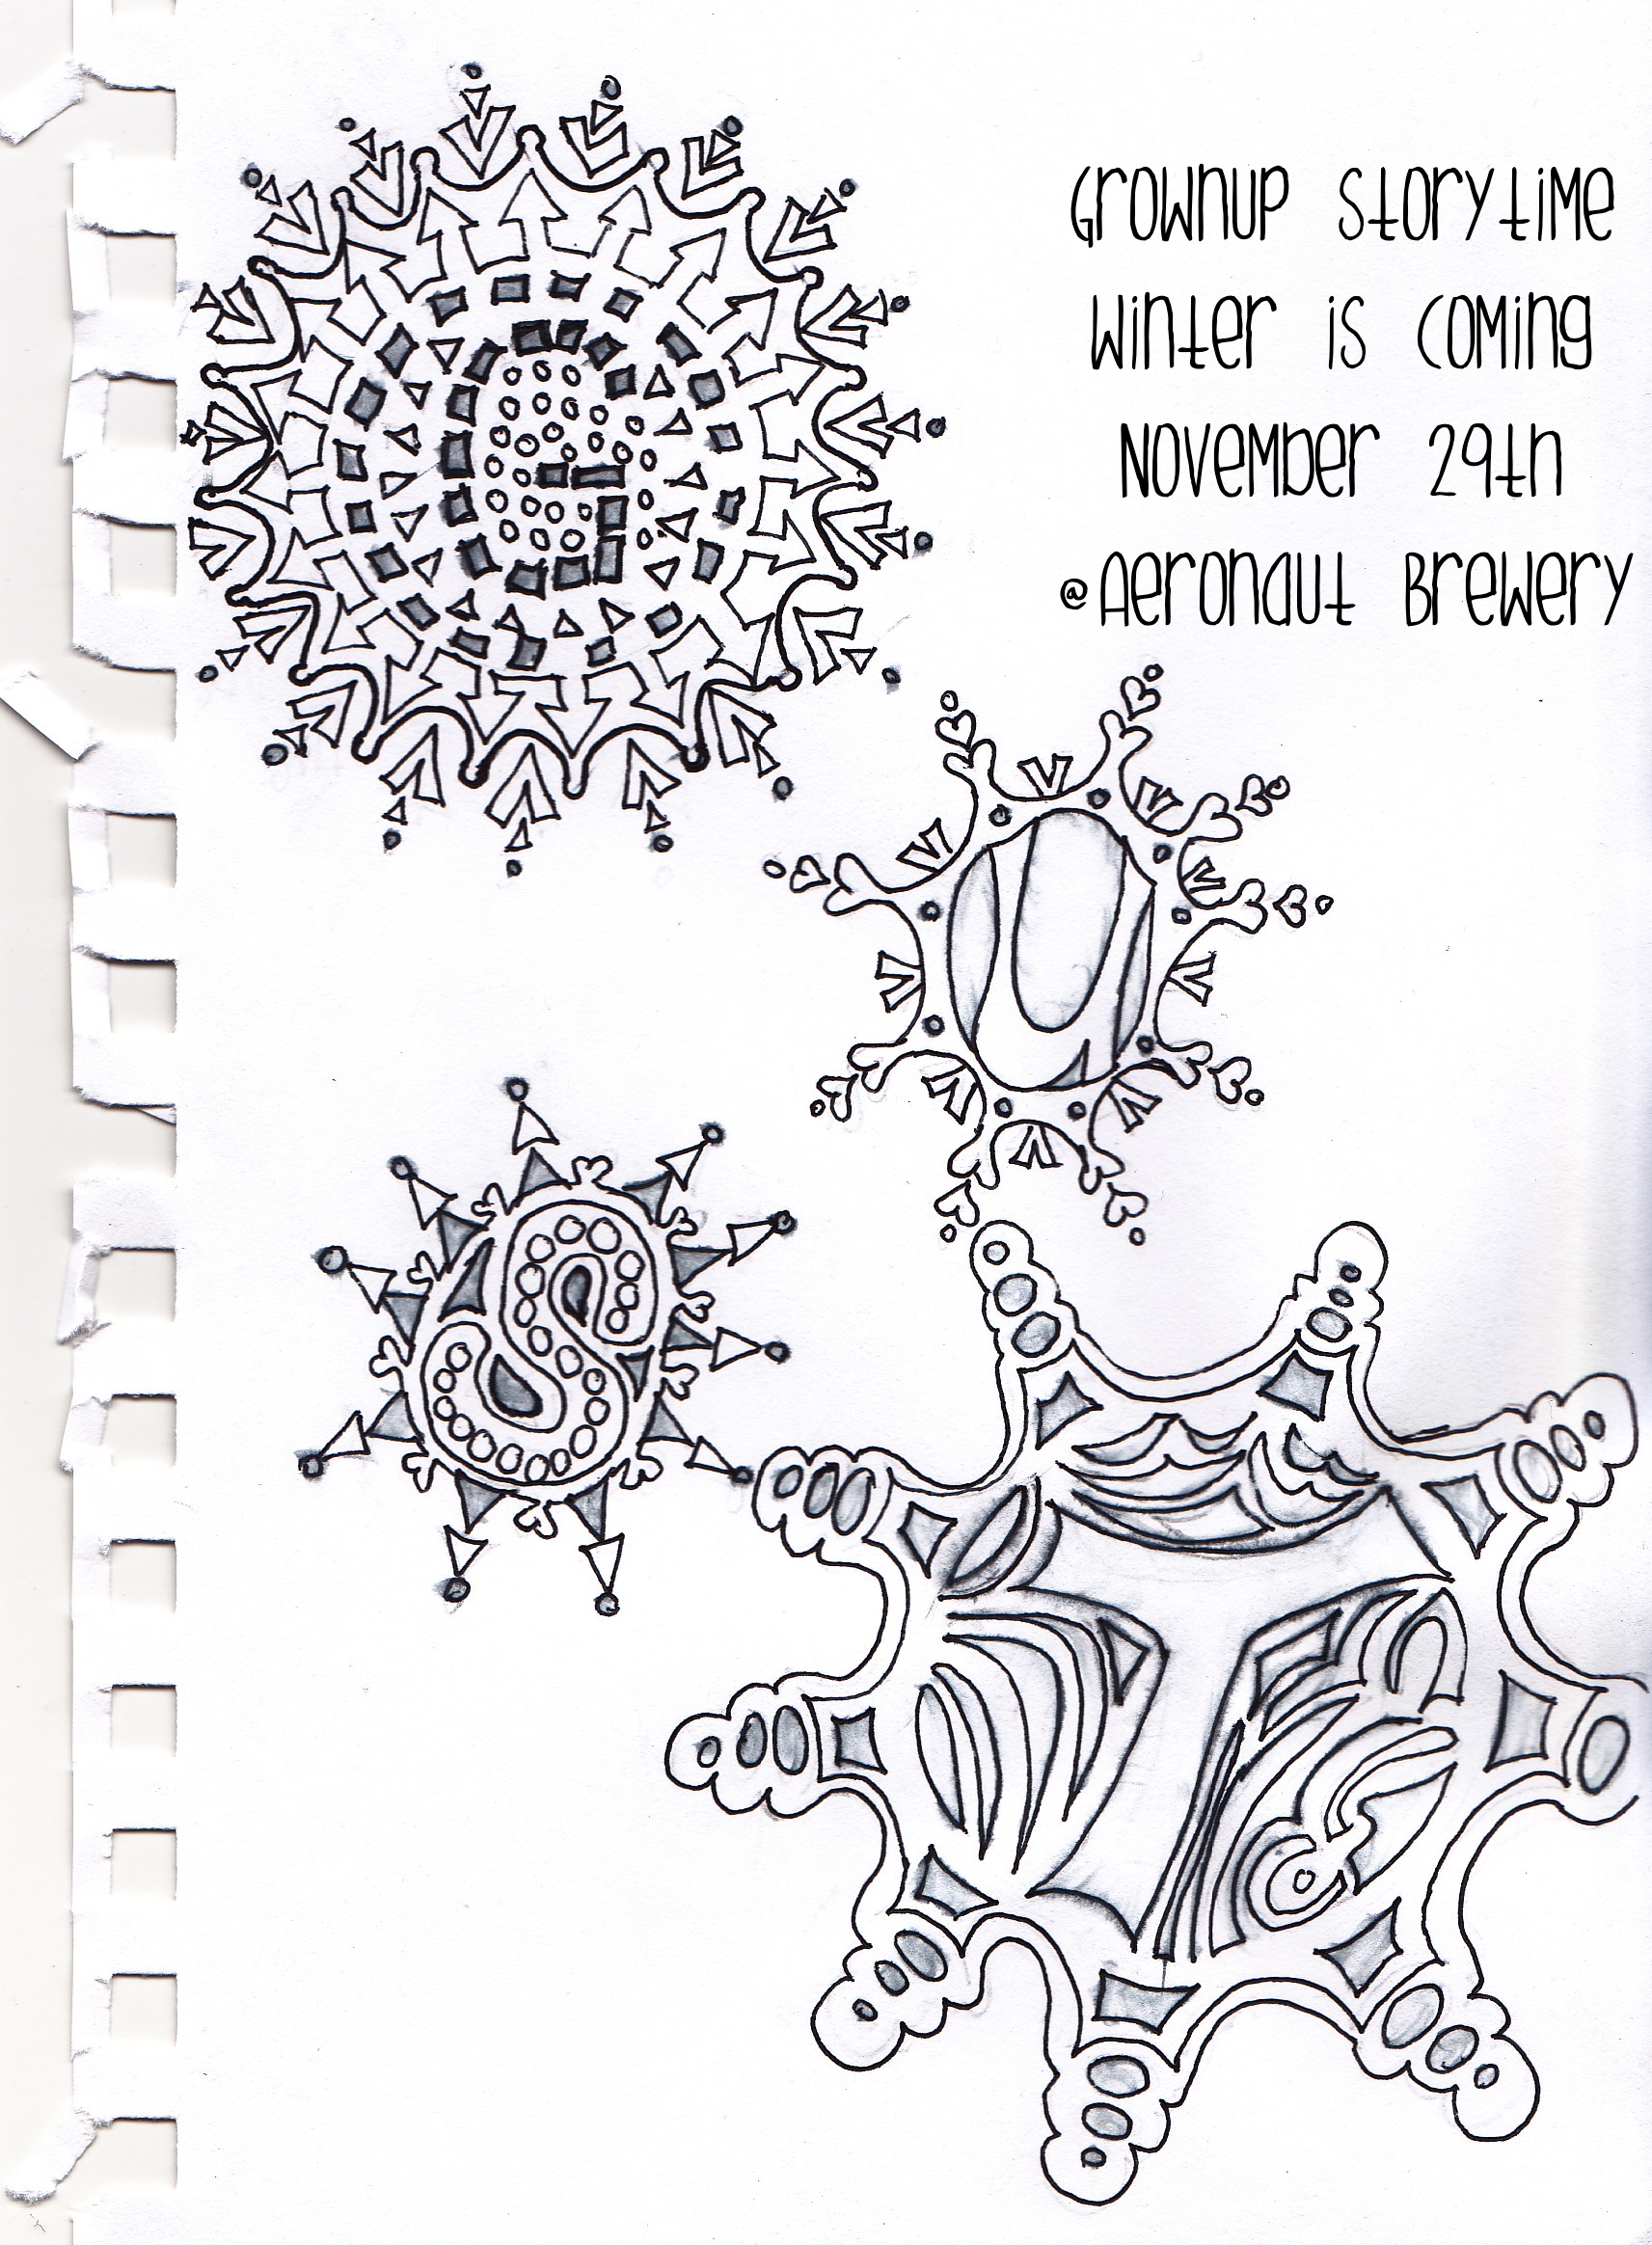 Grownup Storytime
Winter is Coming
November 29th
@Aeronaut Brewery
G
U
S
T